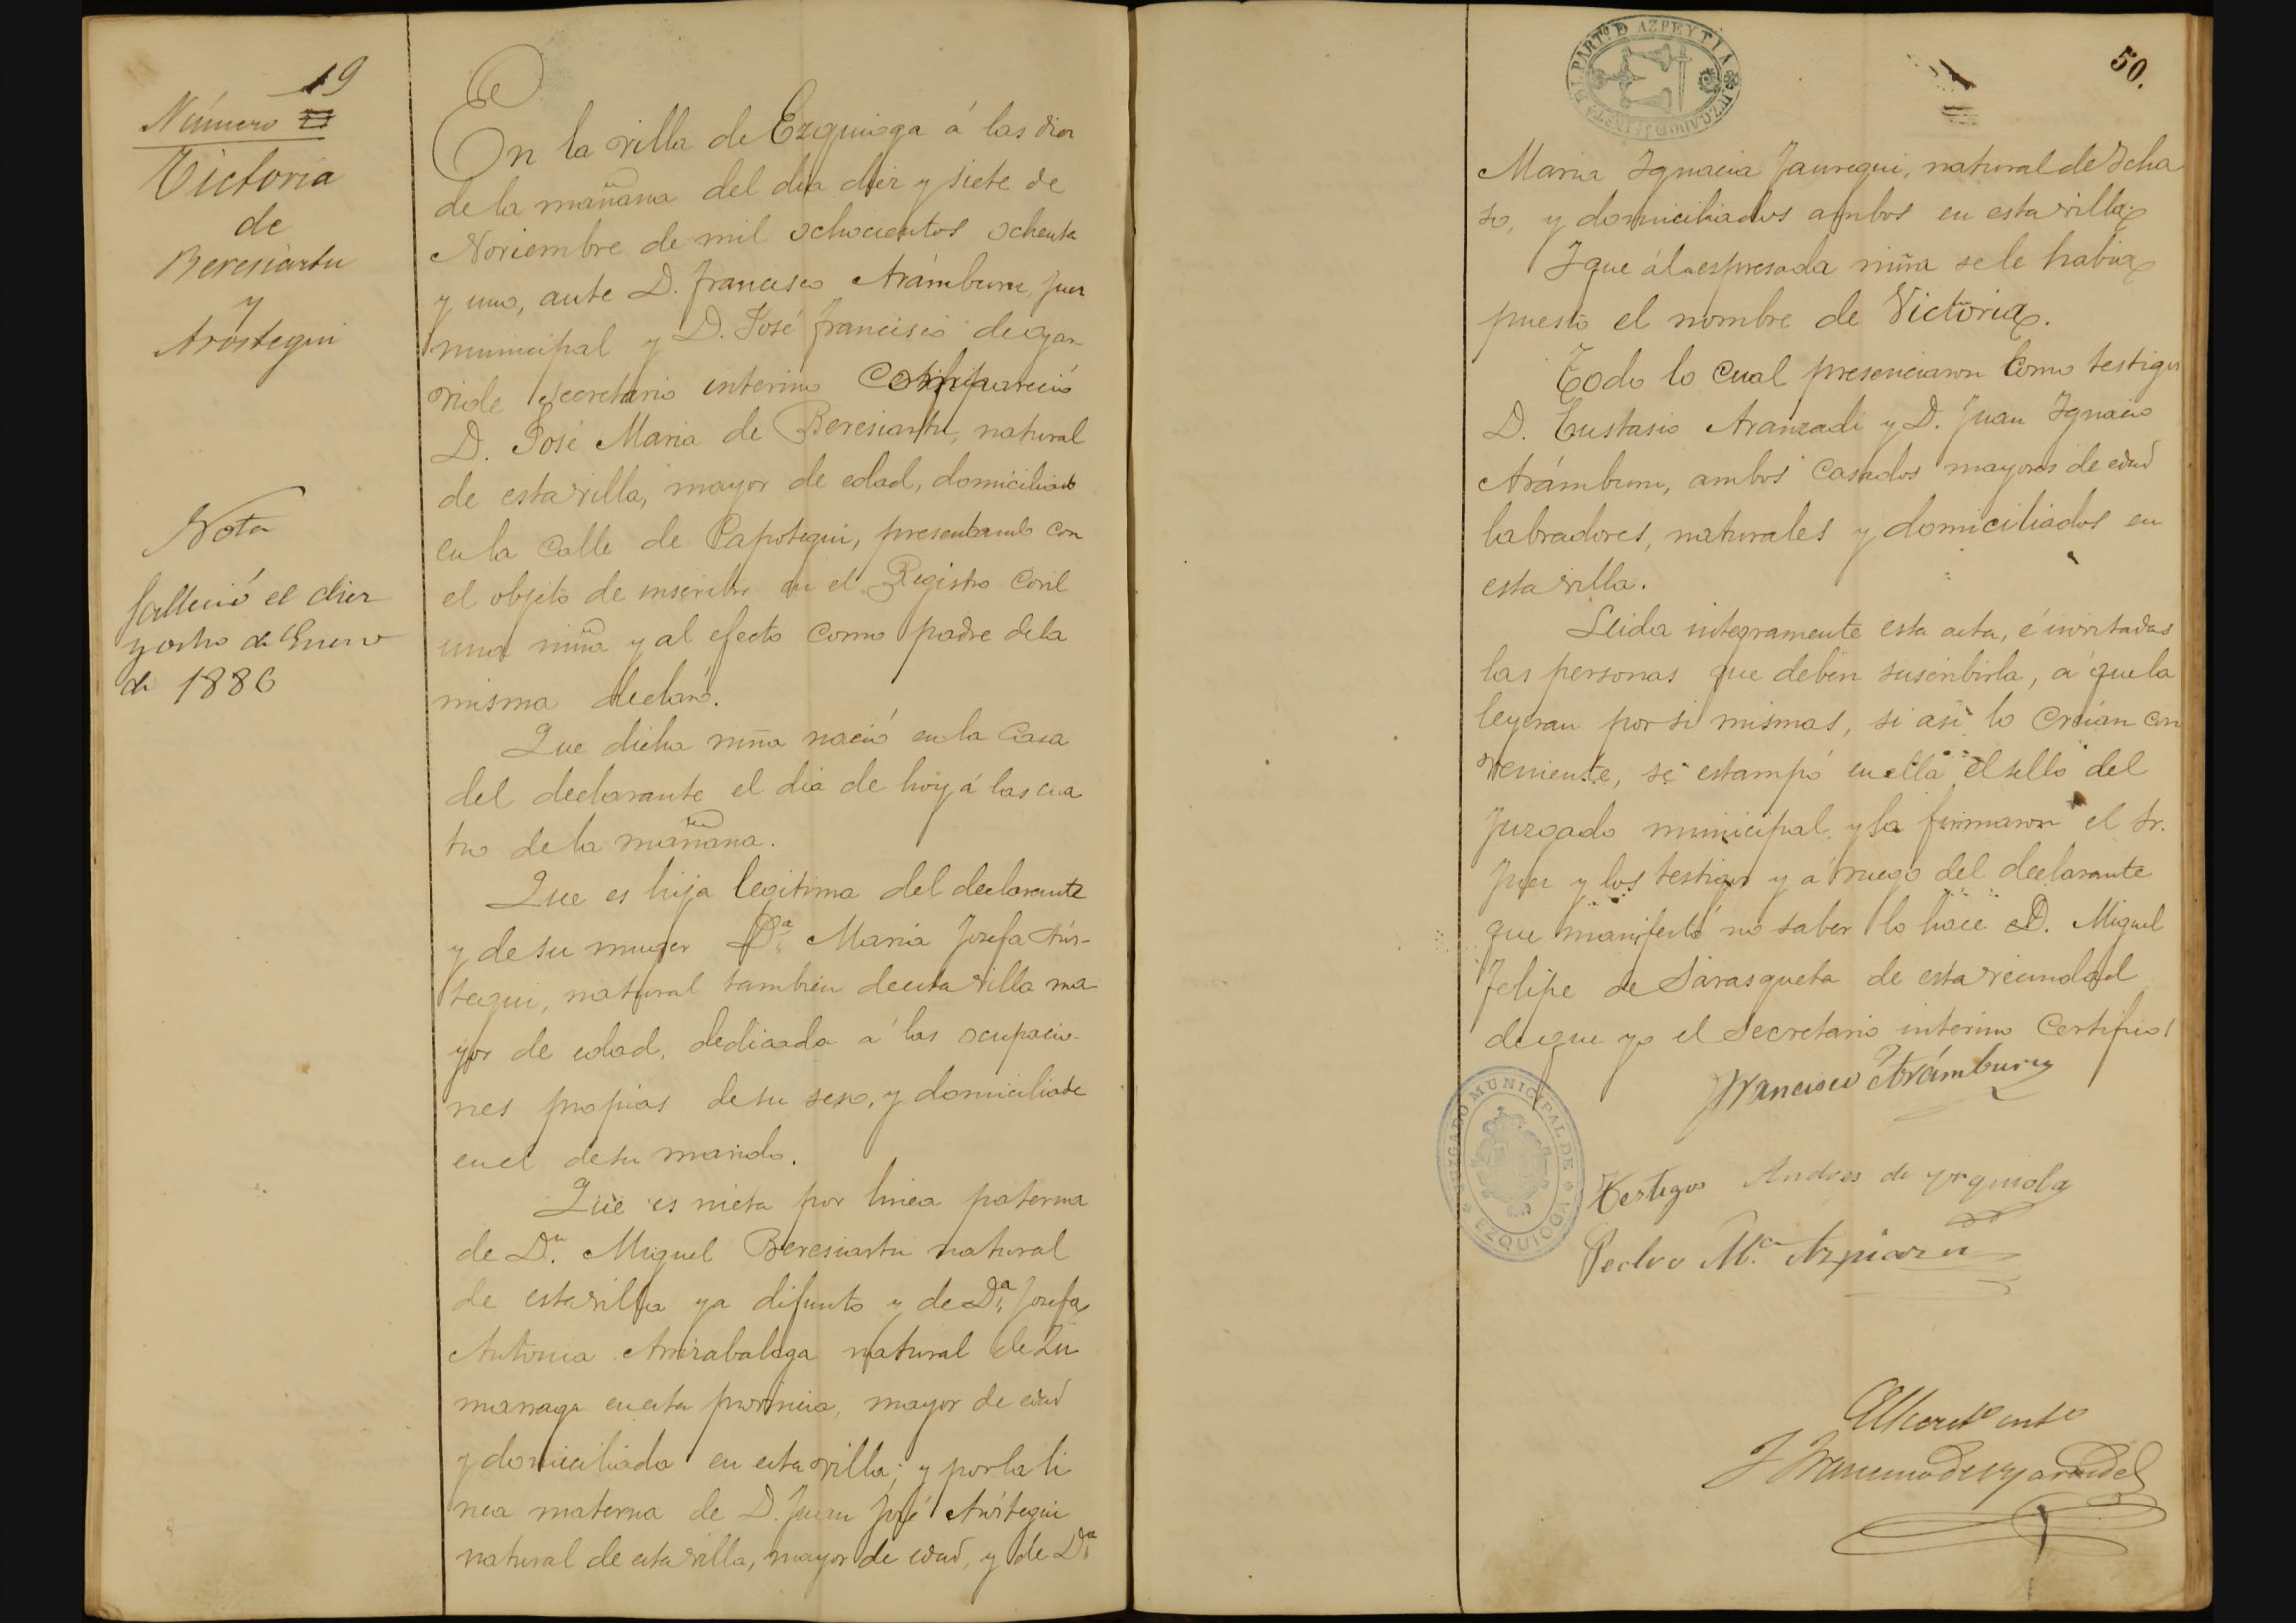 19
Número
Victoria
de
Beresiartu
y
Aróstegui
Nota
falleció el diez
y ocho de Enero
de 1886
En la villa de Ezquioga á las diez
de la mañana del dia diez y siete de
Noviembre de mil ochocientos ochenta
y uno, ante D. Francisco Arámburu, Juez
municipal y D. José Francisco de Oyar
vide secretario interino Compareció
D. José Maria de Beresiartu, natural
de esta villa, mayor de edad, domiciliado
en la Calle de Papotegui, presentando con
el objeto de inscribir en el Registro Civil
una niña y al efecto como padre de la
misma declaró.
Que dicha niña nació en la Casa
del declarante el dia de hoy á las cua
tro de la mañana.
Que es hija legitima del declarante
y de su muger Dª Maria Josefa Arós-
tegui, natural tambien de esta villa ma
yor de edad, dedicada á las ocupacio-
nes propias de su sexo, y domiciliada
en el de su marido.
Que es nieta por linea paterna
de Dn. Miguel Beresiartu natural
de esta villa ya difunto y de Dª Josefa
Antonia Arrizabalaga natural de Zu
marraga en esta provincia, mayor de edad
y domiciliada en esta villa; y por la li
nea materna de D. Juan José Aróstegui
natural de esta villa, mayor de edad, y de Dª
PARTº D AZPEYTIA
50.
Maria Ignacia Jauregui, natural de Icha
so, y domiciliados ambos en esta villa
Y que á la espresada niña se le habia
puesto el nombre de Victoria.
Todo lo cual presenciaron como testigos
D. Eustasio Aranzadi y D. Juan Ignacio
Arámburu, ambos casados mayores de edad
labradores, naturales y domiciliados en
esta villa.
Leida integramente esta acta, é invitadas
las personas que deben suscribirla, á que la
leyeran por si mismas, si asi lo creian con
veniente, se estampó en ella el sello del
Juzgado municipal, y la firmaron el Sr.
Juez y los testigos y á ruego del declarante
que manifestó no saber lo hace D. Miguel
Felipe de Sarasqueta de esta vecindad
de que yo el Secretario interino Certifico
Francisco Arámburu
JUZGADO MUNICIPAL DE EZQUIOGA
Testigos Andres de Urquiola
Pedro Mª Azpiazu
El Secretº intº
J Francisco de Oyarvide